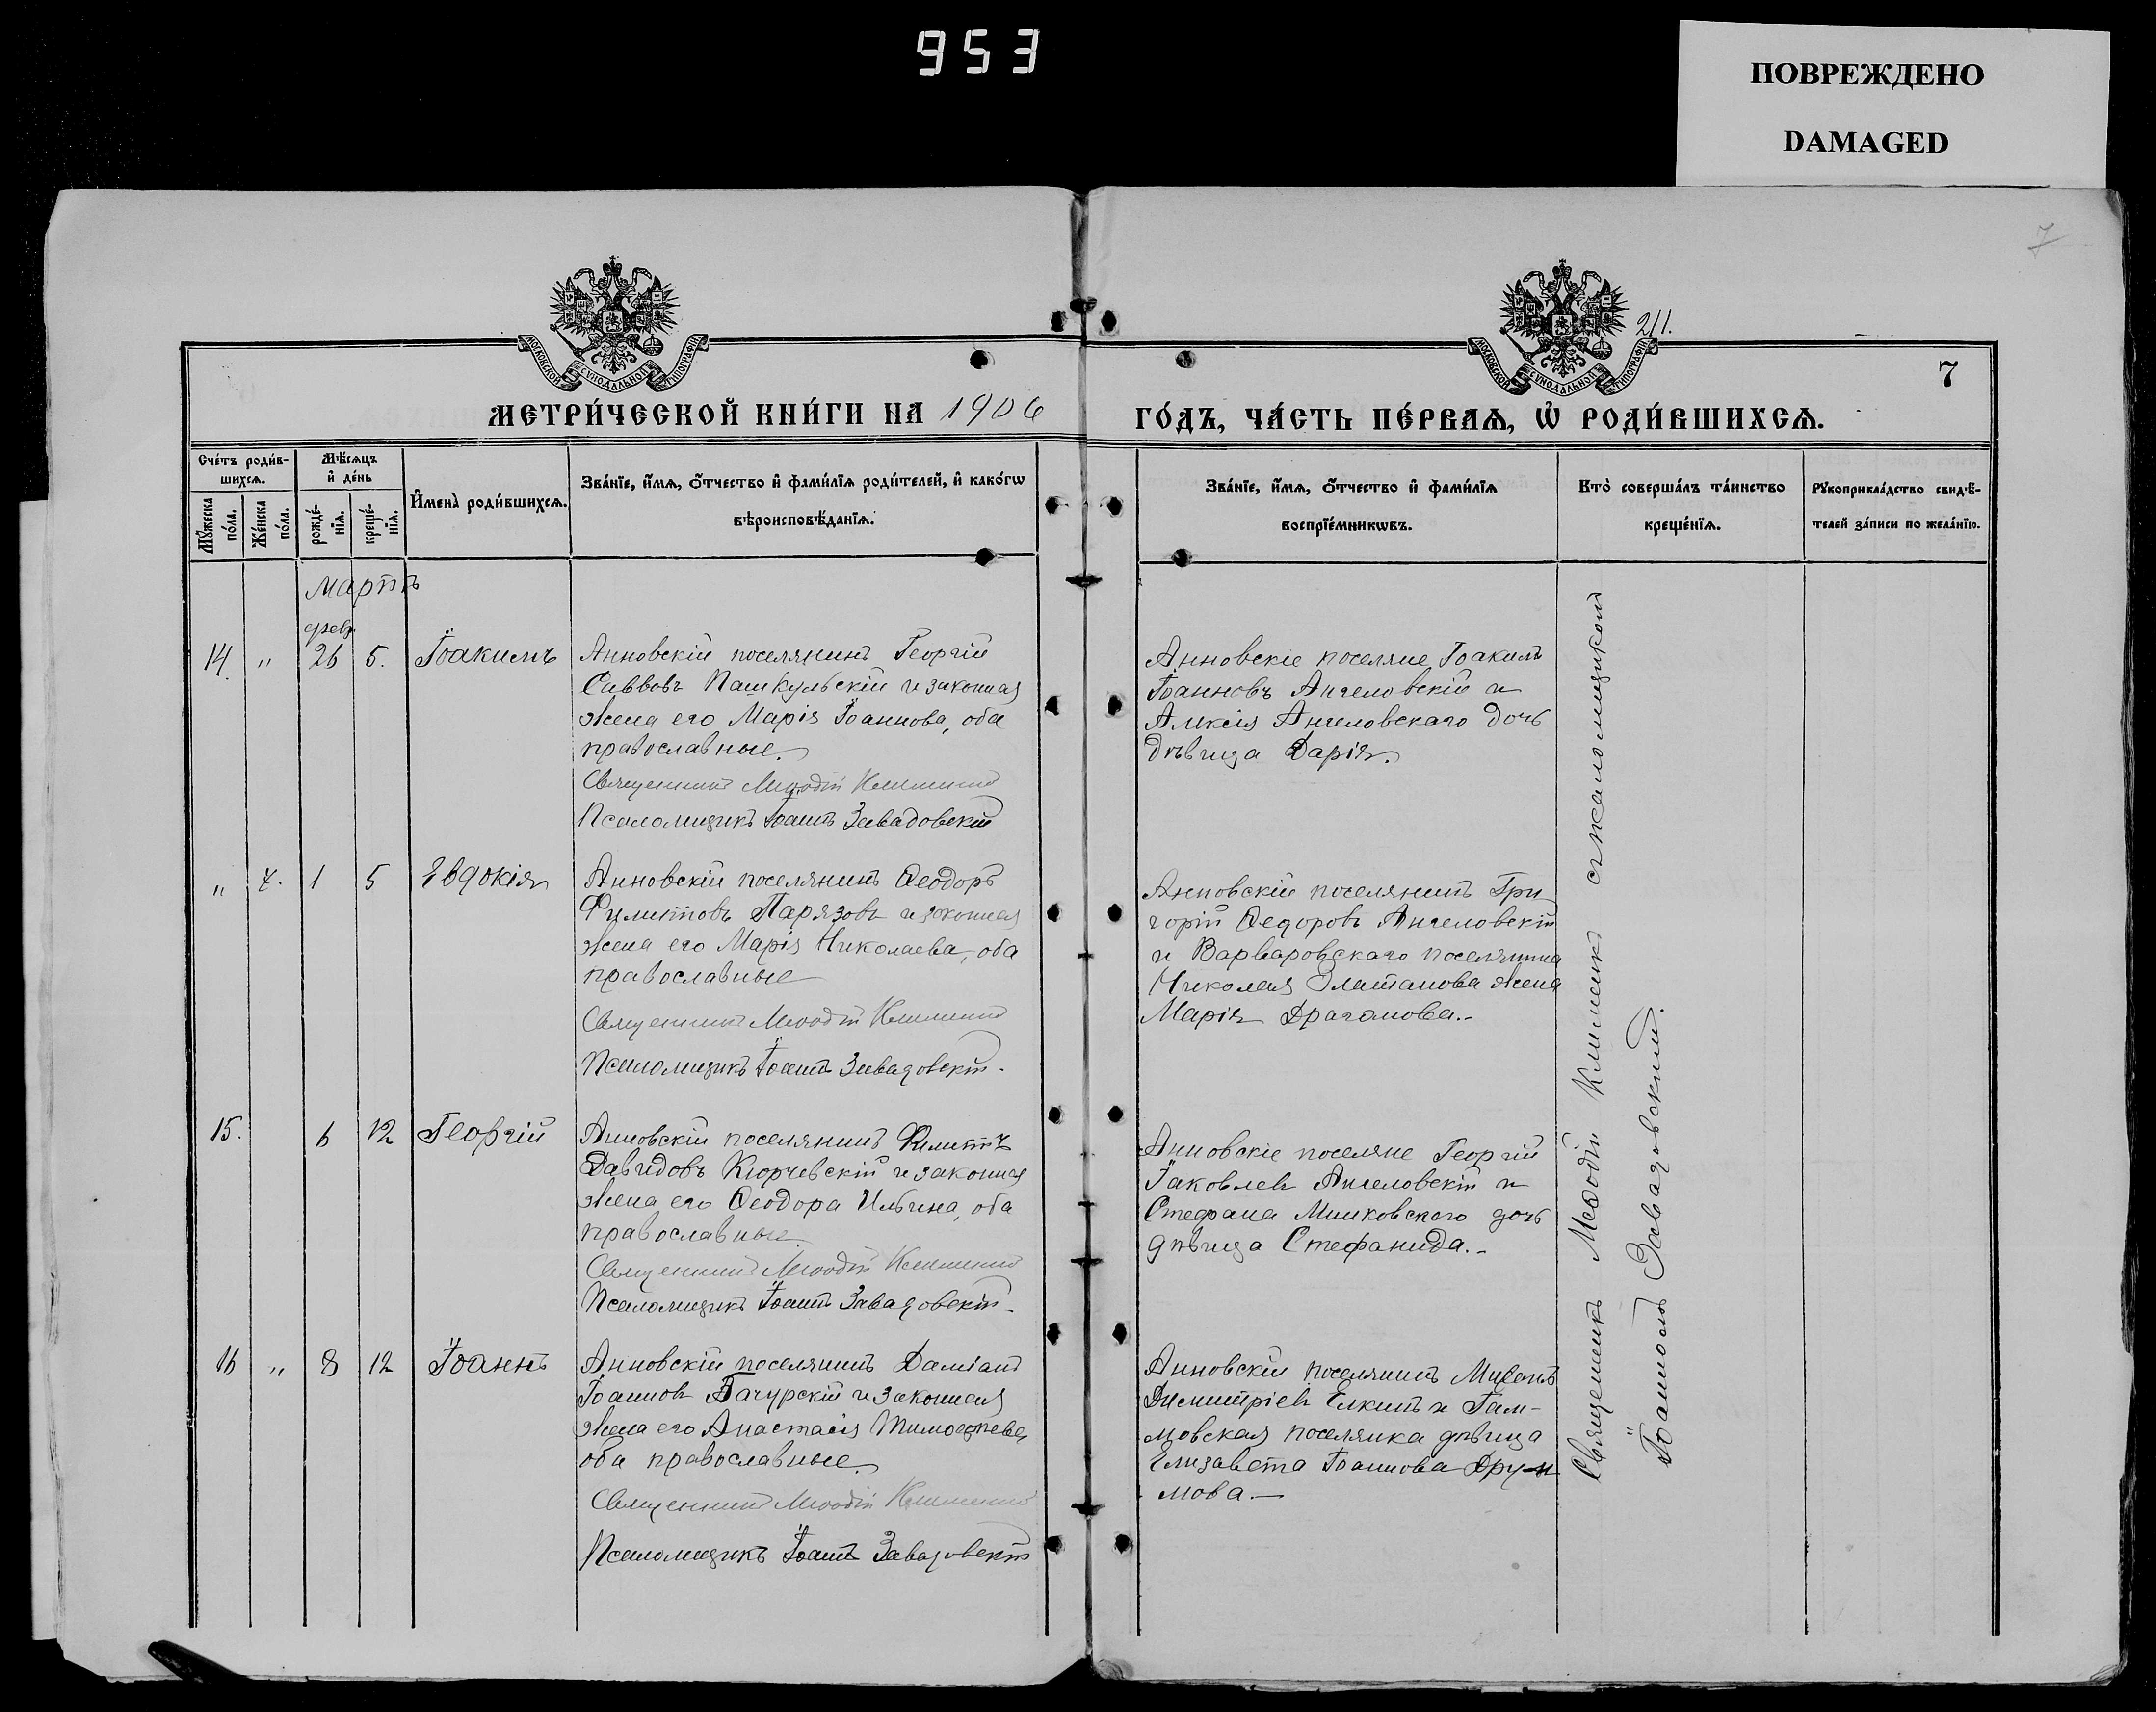 953
ПОВРЕЖДЕНО
DAMAGED
7
211.
7
МОСКОВСКОЙ СУНОДАЛЬНОЙ ТИПОГРАФІИ
МОСКОВСКОЙ СУНОДАЛЬНОЙ ТИПОГРАФІИ
МЕТРИ́ЧЕСКОЙ КНИ́ГИ НА 1906
ГО́ДЪ, ЧА́СТЬ ПЕ́РВАѦ, Ѡ҆ РОДИ́ВШИХСѦ.
Сче́тъ роди́в-
шихсѧ.
Мѣ́сѧцъ
и҆ де́нь
Мꙋ́жеска
по́ла.
Же́нска
по́ла.
рожде́-
нїѧ.
креще́-
нїѧ.
И҆мена̀ роди́вшихсѧ.
Зва́нїе, и҆́мѧ, ѻ҆́тчество и҆ фами́лїѧ роди́телей, и҆ како́гѡ
вѣроисповѣ́данїѧ.
Зва́нїе, и҆́мѧ, ѻ҆́тчество и҆ фами́лїѧ
воспрїе́мникѡвъ.
Кто̀ соверша́лъ та́инство
креще́нїѧ.
Рꙋкоприкла́дство свидѣ́-
телей за́писи по жела́нїю.
Мартъ
февр.
14. " 26 5. Іоакимъ
Анновскій поселянинъ Георгій
Саввовъ Пашкульскій и законная
жена его Марія Іоаннова, оба
православные.
Священникъ Меѳодій Клименко
Псаломщикъ Іоаннъ Завадовскій
Анновскіе поселяне Іоакимъ
Іоанновъ Ангеловскій и
Алексія Ангеловскаго дочь
дѣвица Дарія.
" 7. 1 5 Евдокія
Анновскій поселянинъ Ѳеодоръ
Филипповъ Парязовъ и законная
жена его Марія Николаева, оба
православные
Священникъ Меѳодій Клименко
Псаломщикъ Іоаннъ Завадовскій.
Анновскій поселянинъ Гри
горій Ѳедоровъ Ангеловскій
и Варваровскаго поселянина
Николая Златанова жена
Марія Драганова.-
15. 6 12 Георгій
Анновскій поселянинъ Филиппъ
Давидовъ Кюрчевскій и законная
жена его Ѳеодора Ильина, оба
православные.
Священникъ Меѳодій Клименко
Псаломщикъ Іоаннъ Завадовскій.
Анновскіе поселяне Георгій
Іаковлевъ Ангеловскій и
Стефана Минковского дочь
дѣвица Стефанида.-
16 " 8 12 Іоаннъ
Анновскій поселянинъ Даміанъ
Іоанновъ Бачурскій и законная
жена его Анастасія Тимоѳеева
оба православные.
Священникъ Меѳодій Клименко
Псаломщикъ Іоаннъ Завадовскій
Анновскій поселянинъ
Димитріевъ Елкинъ и Там-
мовская поселянка дѣвица
Елизавета Іоаннова Друм
мова.-
Священникъ Меѳодій Клименко съ псаломщикомъ
Іоанномъ Завадовскимъ.